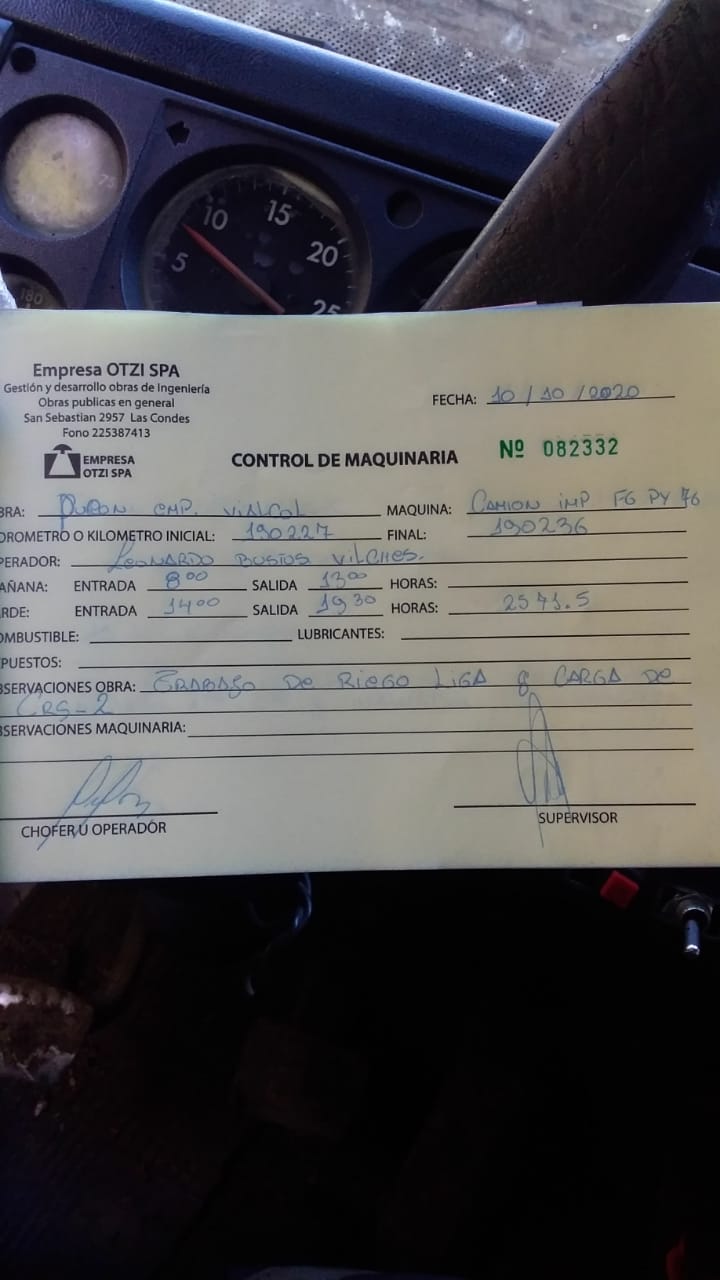 10 15 20
5 25
180
Empresa OTZI SPA
Gestión y desarrollo obras de Ingeniería
Obras publicas en general
San Sebastian 2957 Las Condes
Fono 225387413
EMPRESA
OTZI SPA
FECHA: 10 / 10 / 2020
CONTROL DE MAQUINARIA
Nº 082332
BRA: EMP. MAQUINA: CAMION IMP FG PY 76
OROMETRO O KILOMETRO INICIAL: 190227 FINAL: 190236
PERADOR: LEONARDO BUSTOS VILCHES.
AÑANA: ENTRADA 8:00 SALIDA 13:00 HORAS:
RDE: ENTRADA 14:00 SALIDA 19:30 HORAS: 2571.5
OMBUSTIBLE: LUBRICANTES:
PUESTOS:
BSERVACIONES OBRA: TRABAJO DE RIEGO LIGA & CARGA DE
CRS-2
BSERVACIONES MAQUINARIA:
CHOFER U OPERADOR SUPERVISOR